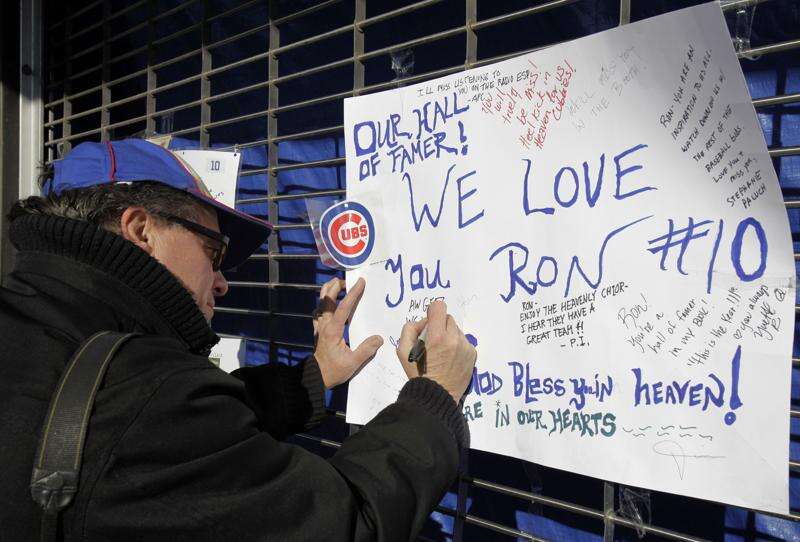 I'LL MISS LISTENING TO
YOU ON THE RADIO
OUR HALL
OF FAMER!
10
WE LOVE
YOU RON #10
CUBS
You will
truly
be miss!
IN THE BOOTH.
RON- YOU ARE AN
INSPIRATION TO US ALL.
WATCH DOWN ON US W/
THE REST OF THE
BASEBALL GODS.
LOVE YOU &
MISS YOU,
STEPHANIE
RON-
ENJOY THE HEAVENLY CHIOR-
I HEAR THEY HAVE A
GREAT TEAM!!
- P.I.
RON!
You're a
hall of famer
in my book!
"This is the year!!!"
you always
GOD BLESS you in HEAVEN!
RE IN OUR HEARTS